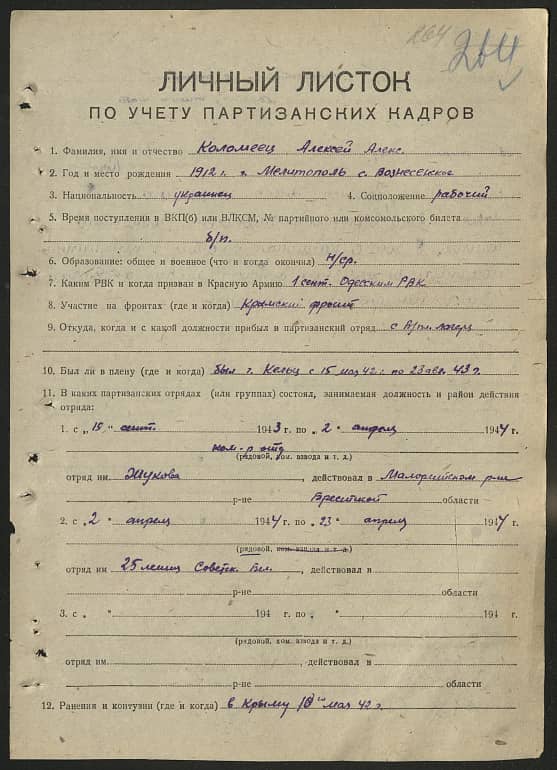 264
264
ЛИЧНЫЙ ЛИСТОК
ПО УЧЕТУ ПАРТИЗАНСКИХ КАДРОВ
1. Фамилия, имя и отчество Коломеец Алексей Алекс.
2. Год и место рождения 1912 г. г. Мелитополь с. Вознесенское
3. Национальность украинец 4. Соцположение рабочий
5. Время поступления в ВКП(б) или ВЛКСМ, № партийного или комсомольского билета
б/п.
6. Образование: общее и военное (что и когда окончил) н/ср.
7. Каким РВК и когда призван в Красную Армию 1 сент. Одесским РВК
8. Участие на фронтах (где и когда) Крымский фронт
9. Откуда, когда и с какой должности прибыл в партизанский отряд с лагеря
10. Был ли в плену (где и когда) был г. Кельц с 15 мая 42 г. по 23 авг. 43 г.
11. В каких партизанских отрядах (или группах) состоял, занимаемая должность и район действия
отряда:
1. с „15" сент. 1943 г. по „2" апрель 1944 г.
ком-р отд
(рядовой, ком. взвода и т. д.)
отряд им Жукова, действовал в Малоритском р-не
р-не Брестской области
2. с „2" апрель 1944 г. по „23" апрель 1944 г.
(рядовой, ком. взвода и т. д.)
отряд им 25 летия Советск. Бел., действовал в
р-не области
3. с „ " 194 г. по „ " 194 г.
(рядовой, ком. взвода и т. д.)
отряд им. , действовал в
р-не области
12. Ранения и контузии (где и когда) в Крыму 10го мая 42 г.